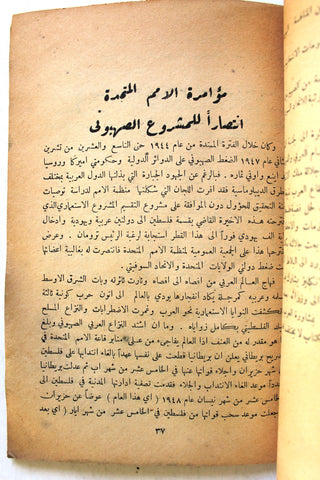 مؤامرة الامم المتحدة
انتصاراً للمشروع الصهيوني
وكان خلال الفترة الممتدة من عام ١٩٤٤ حتى التاسع والعشرين من تشرين
ثاني ١٩٤٧ الضغط الصهيوني على الدوائر الدولية وحكومتي اميركا وروسيا
اينع واوفى ثماره . فبالرغم عن الجهود الجبارة التي بذلتها الدول العربية بمختلف
الطرق الديبلوماسية فقد اقرت اللجان التي شكلتها منظمة الامم لدراسة توصيات
التحقيق للحؤول دون الموافقة على مشروع التقسيم المشروع الاستعماري الذي
هذه الاخيرة القاضي بقسمة فلسطين الى دولتين عربية ويهودية وادخال
الف يهودي فوراً الى هذا القطر استجابة لرغبة الرئيس ترومان . وعاد
للجمعية العمومية لمنظمة الامم المتحدة فانتصرت له بغالبية اعضائها
ضغط دولتي الولايات المتحدة والاتحاد السوفيتي .
فهاج العالم العربي من اقصاه الى اقصاه وثارت ثائرته وبات الشرق الاوسط
وعربيه كمرجلة يكاد انفجارها يودي بالعالم الى اتون حرب كونية ثالثة
النوايا الاستعمارية نحو العرب وعمت الاضطرابات والنزاع المسلح
الفلسطيني بكامل زواياه . وما ان اشتد النزاع العربي الصهيوني وبلغ
من العنف اذا بالعالم يفاجىء من على منبر قاعة الامم المتحدة في
بتصريح بريطاني يعلن ان بريطانيا قطعت على نفسها عهداً بالغاء انتدابها على فلسطين
شهر حزيران واجلاء قواتها عنها في الخامس عشر من شهر اب ثم عدلت بريطانيا
موعد الغاء الانتداب والجلاء فقدمت تصفية ادارتها المدنية في فلسطين الى
الخامس عشر من شهر نيسان عام ١٩٤٨ ( اي هذا العام ) عوضاً عن حزيران
جعلت موعد سحب قواتها من فلسطين في الخامس عشر من شهر ايار ( اي بعد
٣٧